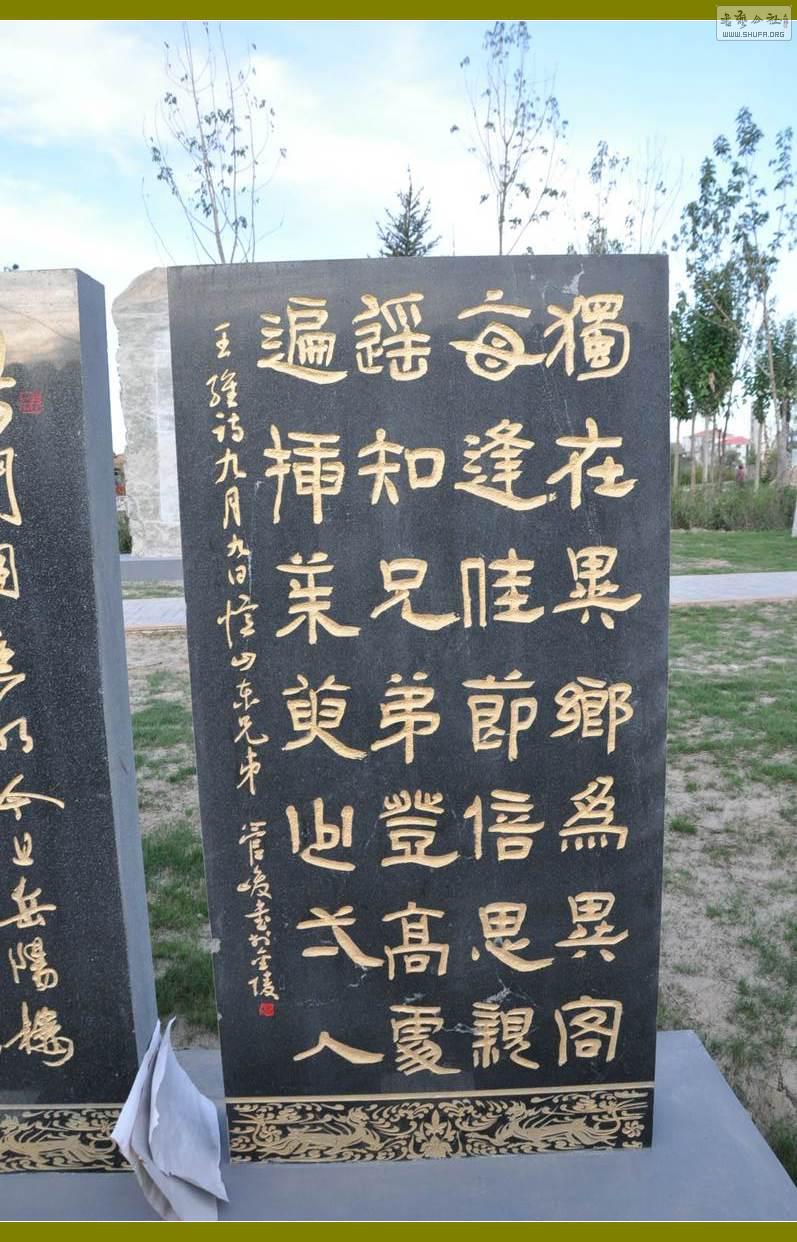 獨在異鄉為異客
每逢佳節倍思親
遥知兄弟登高處
遍插茱萸少弌人
王維詩九月九日憶山東兄弟 管峻書於金陵
岳陽樓
书艺公社
WWW.SHUFA.ORG